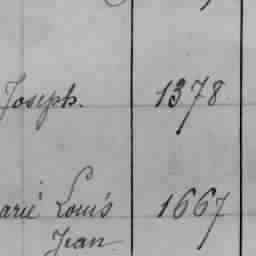 Joseph. 1378
arie Louis 1667
Jean